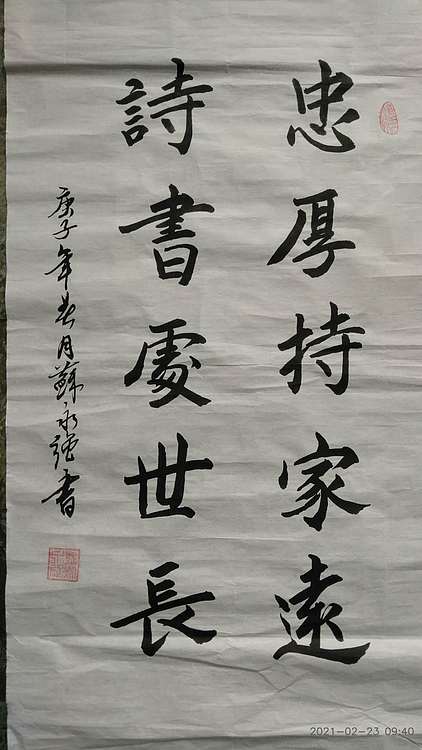 忠厚持家遠
詩書處世長
庚子年春月蘇永强書
2021-02-23 09:40